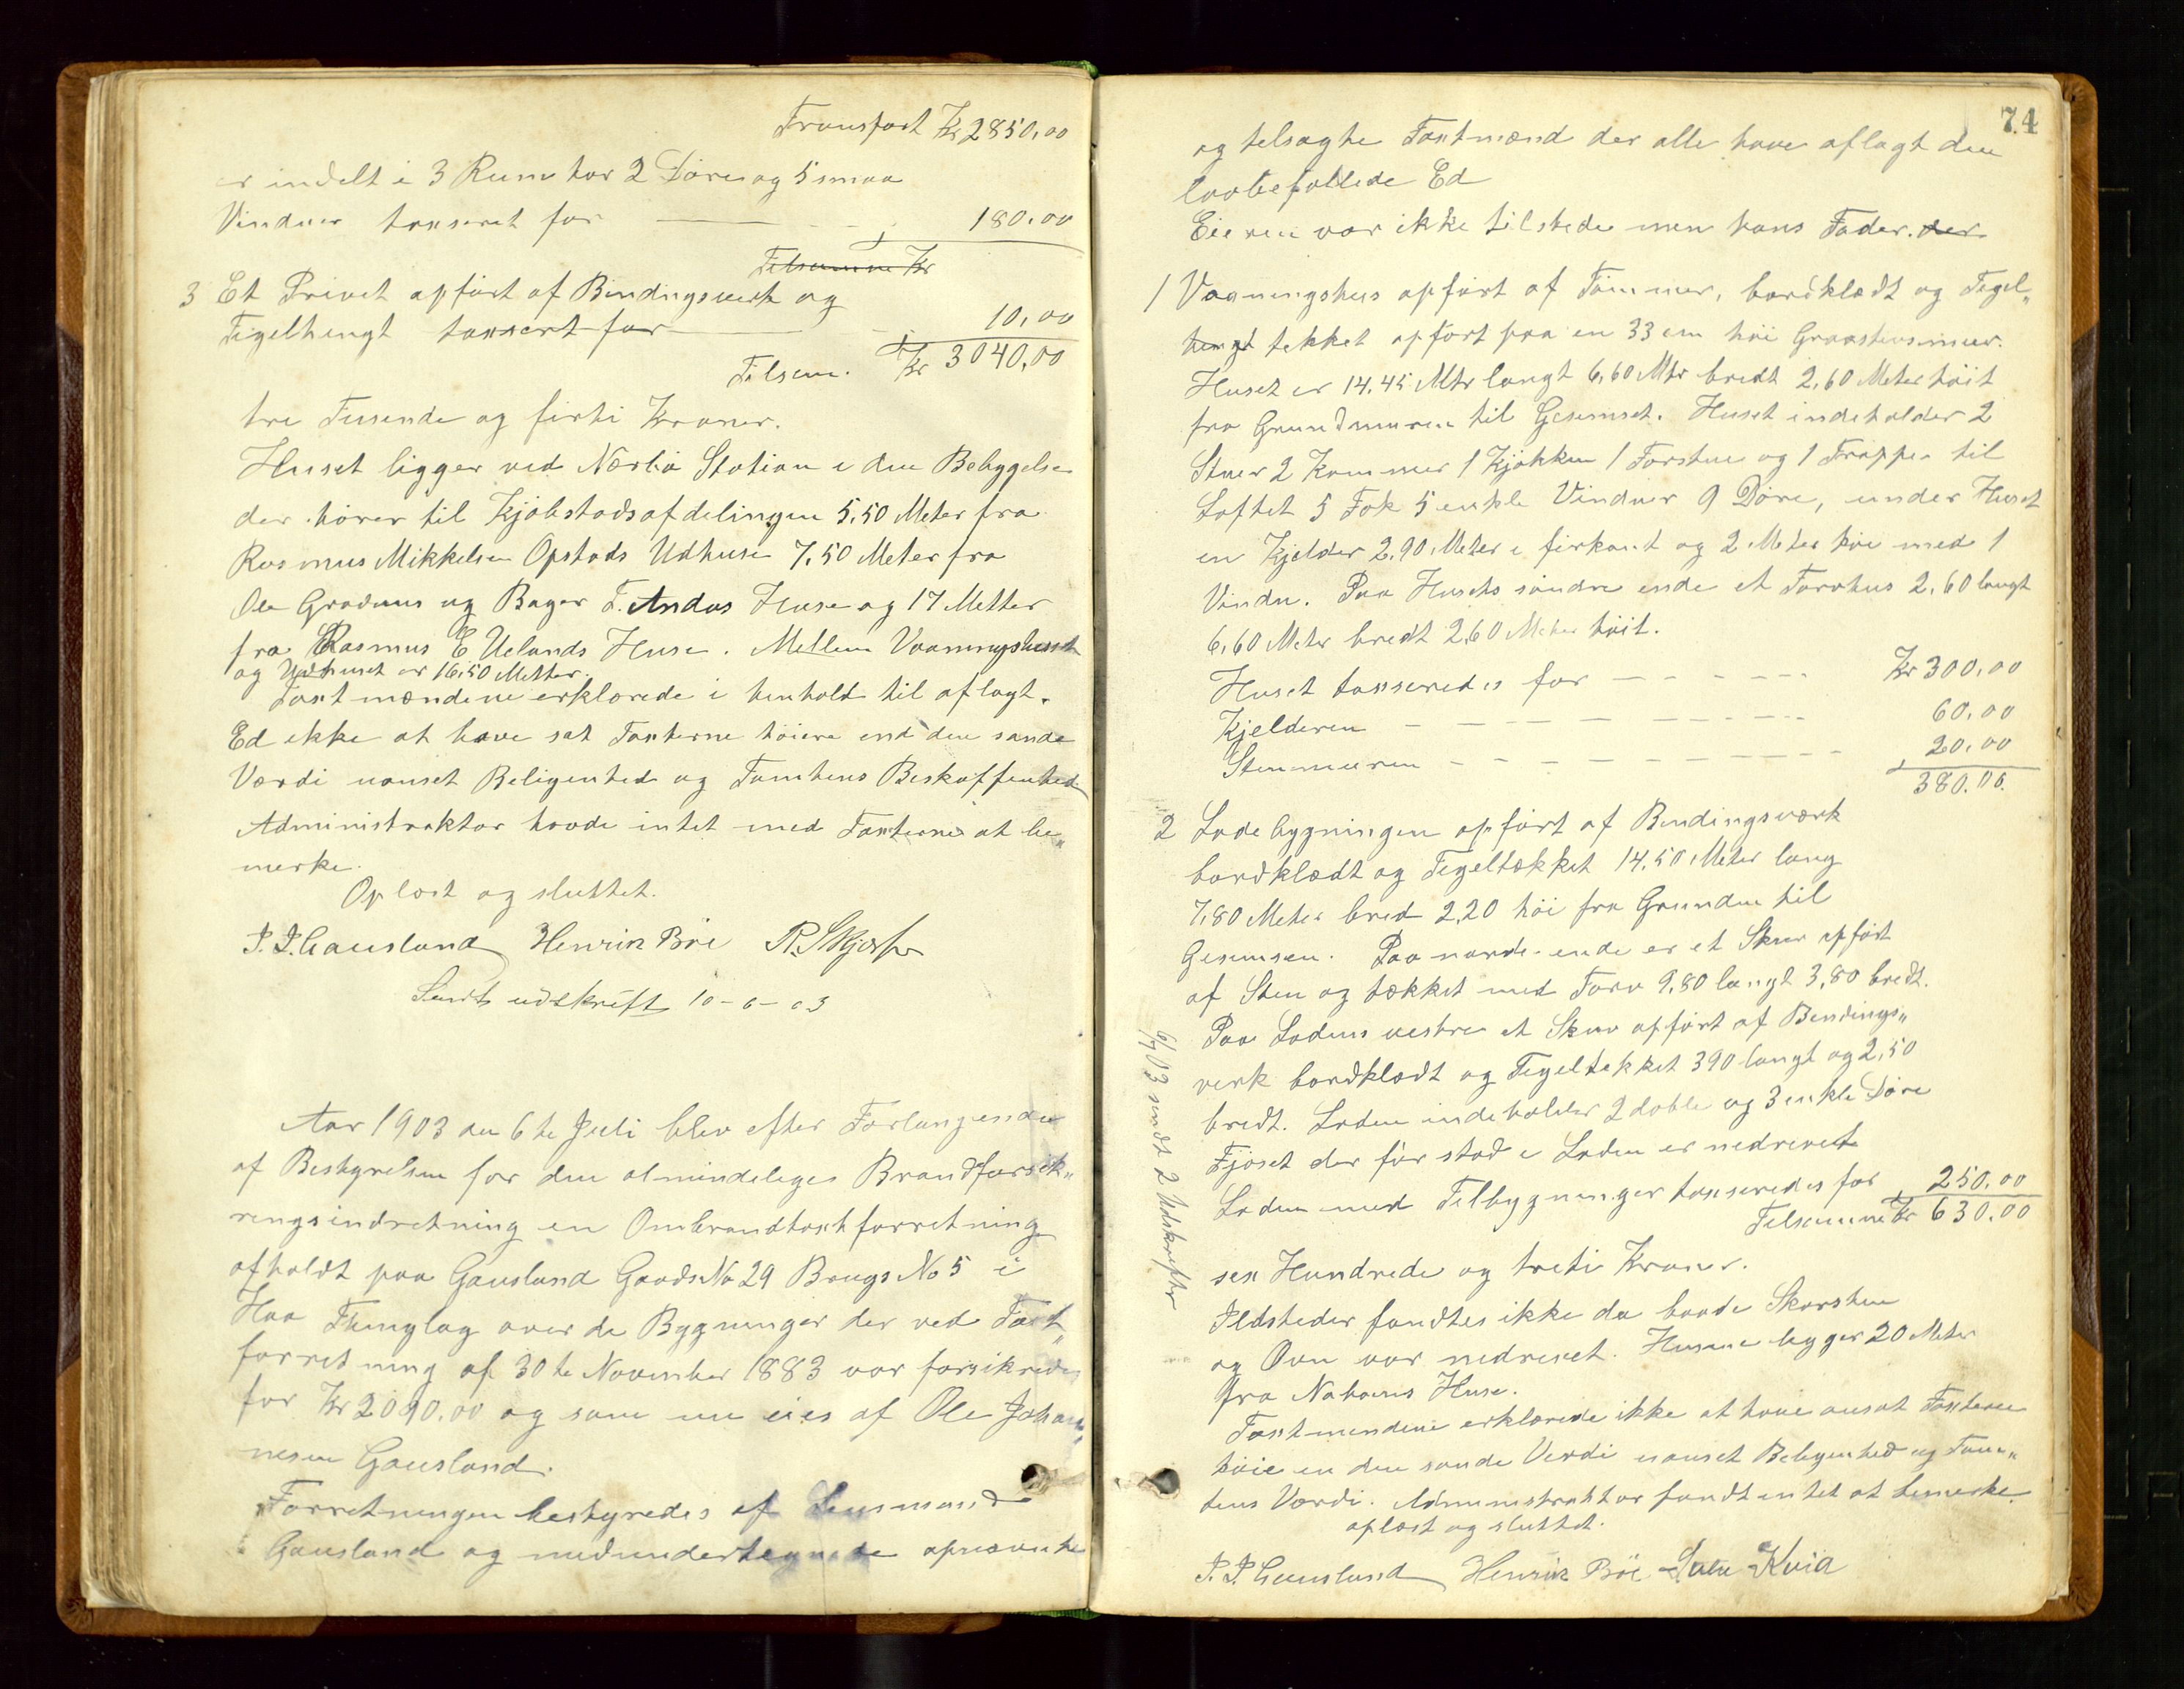 Transport Kr 2850,00
er indelt i 3 Rum har 2 Döre og 5 smaa
Vinduer taxseret for — 180.00
Tilsamme Kr
3 Et Privet opfört af Bindingsverk og
Tigelhengt taxsert for — 10,00
Tilsam. Kr 3040,00
tre Tusende og firti Kroner.
Huset ligger ved Nærbø Station i den Bebyggelse
der hörer til Kjöbstadsafdelingen 5,50 Meter fra
Rasmus Mikkelsen Opstads Udhuse 7,50 Meter fra
Ole Gradmns og Bager T. Andas Huse og 17 Metter
fra Rasmus E Uelands Huse. Mellem Vaaningshuset
og Udhuset er 16,50 Metter.
Taxtmændene erklærede i henhold til aflagt
Ed ikke at have sat Taxterne höiere end den sande
Værdi uanset Beligenhed og Tomtens Beskaffenhed
Administraktor havde intet med Taxterne at be„
merke.
Oplæst og sluttet.
J. J. Gausland Henrik Böe R. Skjærpe
Sendt udskrift 10-6-03
Aar 1903 den 6te Juli blev efter Forlangende
af Bestyrelsen for den almindelige Brandforsik„
ringsindretning en Ombrandtaxtforretning
afholdt paa Gausland Gaards No 29 Brugs No 5 i
Haa Thinglag over de Bygninger der ved Taxt„
forretning af 30te November 1883 var forsikrede
for Kr 2090.00 og som nu eies af Ole Johan„
nesen Gausland.
Forretningen bestyredes af Lensmand
Gausland og medundertegnede opnævnte
74
og telsagte Taxtmænd der alle have aflagt den
lovbefallede Ed
Eieren var ikke tilstede men hans Fader. der
1 Vaaningshus opfört af Tömmer, bordklædt og Tegel„
hengt tekket opfört paa en 33 cm höi Graastensmur.
Huset er 14.45 Mtr langt 6,60 Mtr bredt 2,60 Meter höit
fra Grundmuren til Gesemset. Huset indeholder 2
Stuer 2 Kammer 1 Kjökken 1 Forstue og 1 Trappe til
Loftet 5 Fak 5 enkle Vinduer 9 Döre, under Huset
en Kjelder 2,90 Meter i firkant og 2 Meter höi med 1
Vindu. Paa Husets söndre ende et Torvhus 2,60 langt
6,60 Meter bredt 2,60 Meter höit.
Huset taxseredes for — — — Kr 300,00
Kjelderen — — — 60,00
Stenmuren — — — 20,00
380.00.
2 Lade bygningen opfört af Bindingsværk
bordklædt og Tegeltækket 14,50 Meter lang
7,80 Meter bred 2,20 höi fra Grunden til
Gesemsen. Paa nordre ende er et Skur opfört
af Sten og tækket med Torv 9,80 langt 3,80 bredt.
Paa Ladens vestre et Skur opfört af Bindings„
verk bordklædt og Tegeltekket 390 langt og 2,50
bredt. Laden indeholder 2 doble og 3 enkle Döre
Fjöset der för stod i Laden er nedrevet
Laden med Tilbygninger taxseredes for 250.00
Tilsamme Kr 630.00
sex Hundrede og treti Kroner.
Ildsteder fandtes ikke da baade Skorsten
og Ovn var nedrevet. Husene ligger 20 Meter
fra Naboens Huse.
Taxtmendene erklærede ikke at have ansat Taxterne
höie en den sande Verdi uanset Beligenhed og Tom„
tens Værdi. Administraktor fandt intet at bemerke.
oplæst og sluttet.
J. J. Gausland Henrik Böe Kvia
6/7 03 sendt 2 Udskrifter